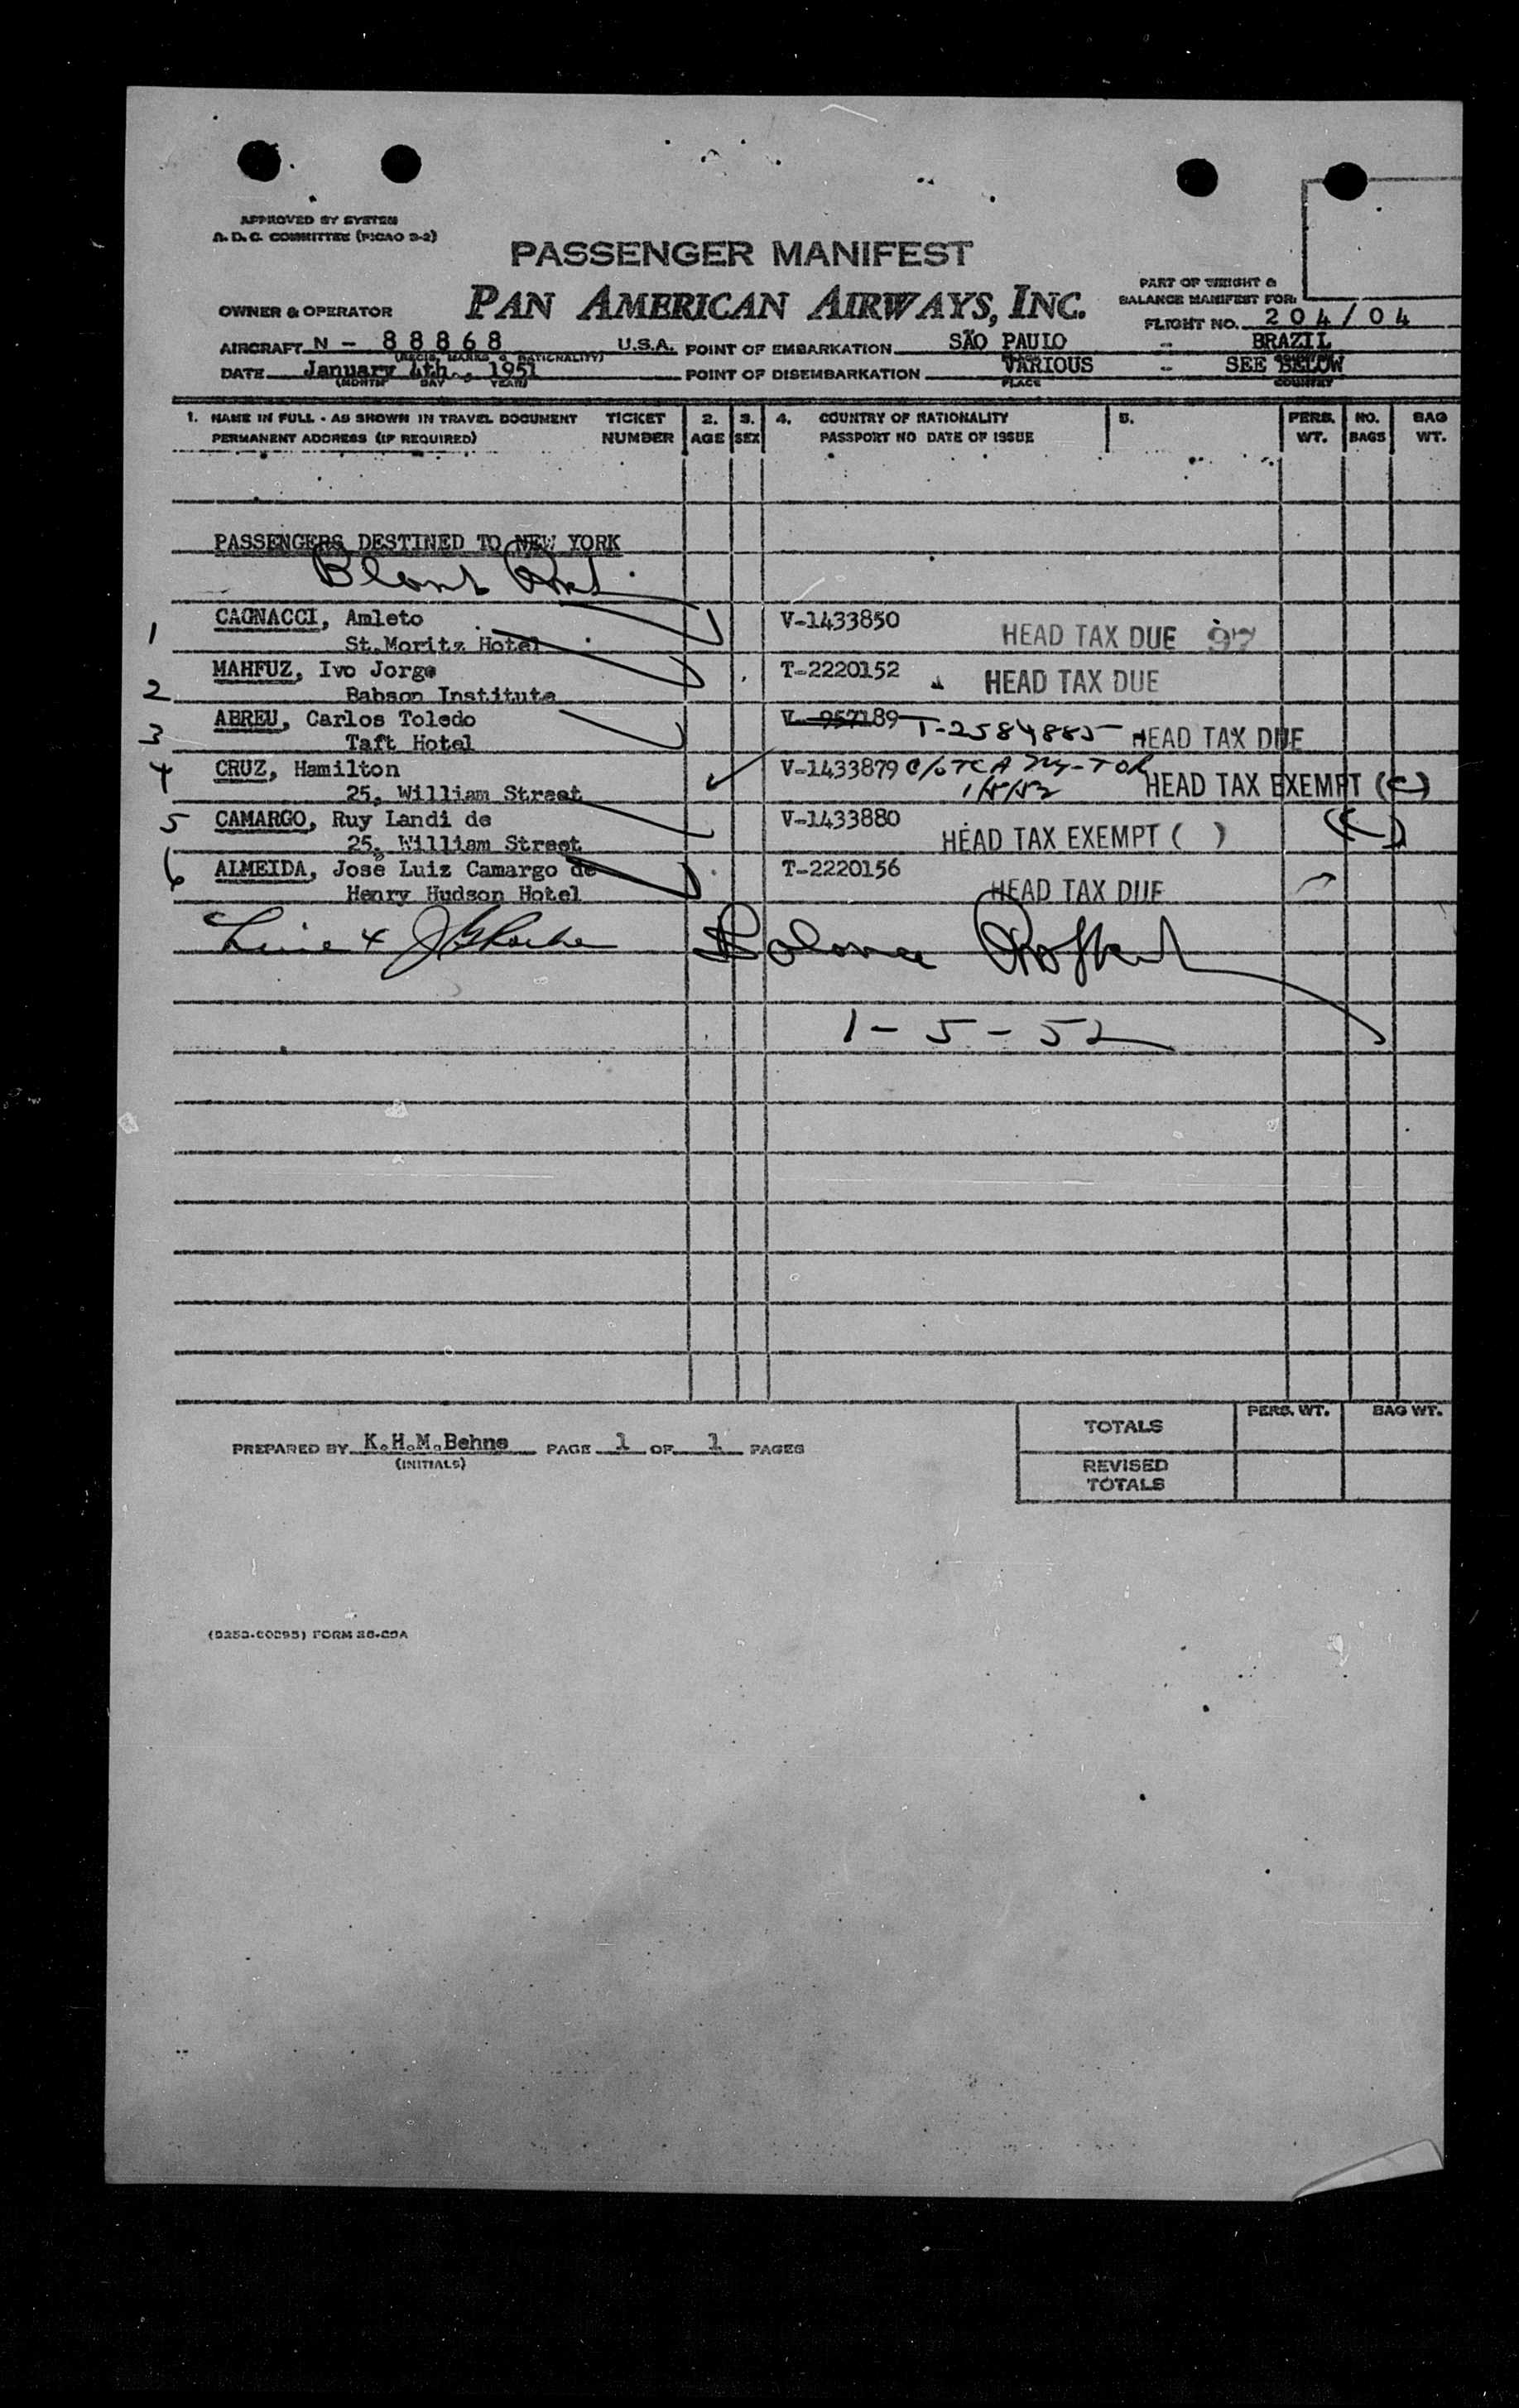 APPROVED BY SYSTEM
A. D. C. COMMITTEE (PICAO 2-2)
PASSENGER MANIFEST
PART OF WEIGHT &
BALANCE MANIFEST FOR:
OWNER & OPERATOR PAN AMERICAN AIRWAYS, INC.
FLIGHT NO. 204/04
AIRCRAFT N - 88868 U.S.A. POINT OF EMBARKATION SÃO PAULO - BRAZIL
(REGIS. MARKS & NATIONALITY)
DATE January 4th., 1951 POINT OF DISEMBARKATION VARIOUS - SEE BELOW
(MONTH DAY YEAR) PLACE COUNTRY
1. NAME IN FULL - AS SHOWN IN TRAVEL DOCUMENT TICKET 2. 3. 4. COUNTRY OF NATIONALITY 5. PERS. NO. BAG
PERMANENT ADDRESS (IF REQUIRED) NUMBER AGE SEX PASSPORT NO DATE OF ISSUE WT. BAGS WT.
PASSENGERS DESTINED TO NEW YORK
1 CAGNACCI, Amleto V-1433850
St.Moritz Hotel HEAD TAX DUE 97
2 MAHFUZ, Ivo Jorge T-2220152 HEAD TAX DUE
Babson Institute
3 ABREU, Carlos Toledo V-957189 T-2584885 HEAD TAX DUE
Taft Hotel
4 CRUZ, Hamilton V-1433879 c/o TCA NY-TOR
25, William Street 1/5/52 HEAD TAX EXEMPT (C)
5 CAMARGO, Ruy Landi de V-1433880
25, William Street HEAD TAX EXEMPT ( ) (C)
6 ALMEIDA, José Luiz Camargo de T-2220156
Henry Hudson Hotel HEAD TAX DUE
Line
1-5-52
PREPARED BY K.H.M.Behne PAGE 1 OF 1 PAGES
(INITIALS)
TOTALS PERS. WT. BAG WT.
REVISED
TOTALS